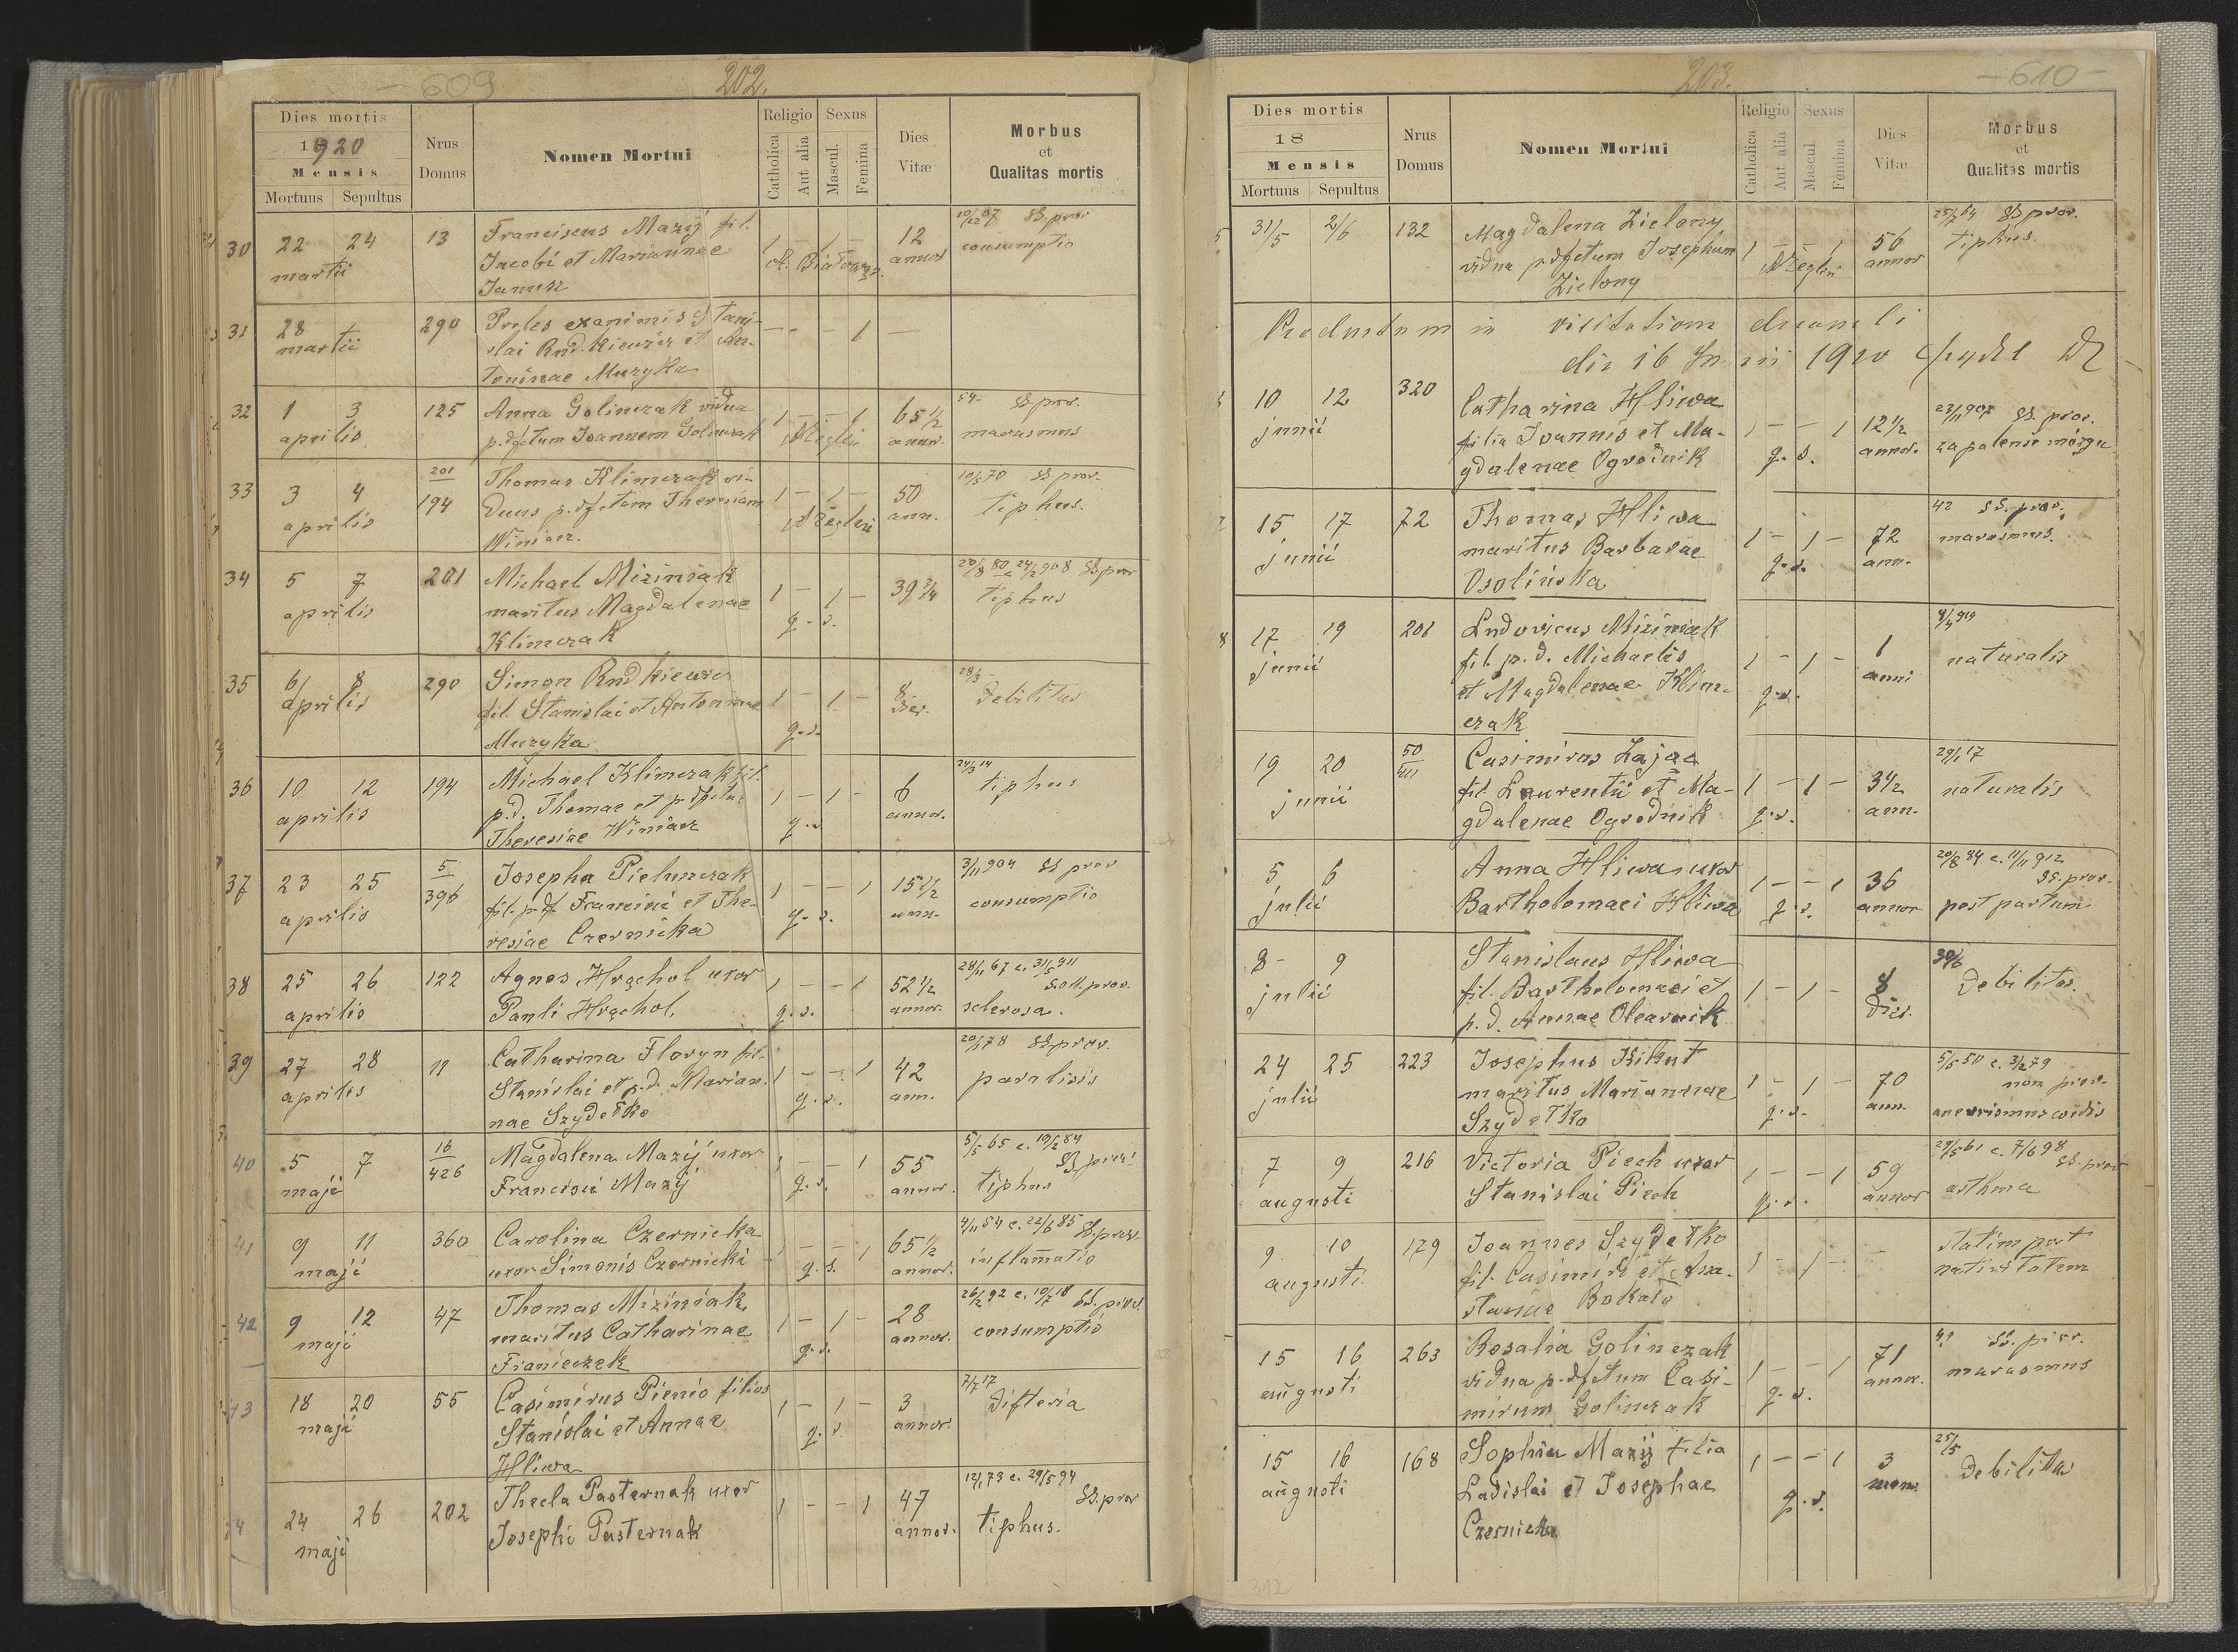 - 609
202.
Dies mortis
1920
Mensis
Mortuus Sepultus
Nrus
Domus
Nomen Mortui
Religio
Catholica
Aut alia
Sexus
Mascul.
Femina
Dies
Vitæ
Morbus
et
Qualitas mortis
30 22 24 martii 13
Franciscus Mazij fil.
Jacobi et Mariannae
Janusz
1 - 1 -
12 annor
10/12 07 SS. prov
consumptio
31 28 martii 290
Proles exanimis Stani-
slai Rudkiewicz et An-
toninae Muzyka
- - - 1 -
32 1 3 aprilis 125
Anna Golinczak vidua
p. dfctum Joannem Golinczak
1 - - 1
65 1/2 annor.
54 SS prov.
marasmus
33 3 4 aprilis 201/194
Thomas Klimczak vi-
duus p. dfctam Theresiam
Winiarz.
1 - 1 -
50 ann.
10/5 70 SS prov.
tiphus.
34 5 7 aprilis 201
Michael Miziniak
maritus Magdalenae
Klimczak
1 - 1 -
q. s.
39 3/4
20/8 80 c 24/2 908 SS prov
tiphus
35 6 8 aprilis 290
Simon Rudkiewicz
fil. Stanislai et Antoninae
Muzyka
1 - 1 -
q. s.
8 dier.
28/3
debilitas
36 10 12 aprilis 194
Michael Klimczak fil.
p. d. Thomae et p. dfctae
Theresiae Winiarz
1 - 1 -
q. s.
6 annor.
24/3 14
tiphus
37 23 25 aprilis 5/396
Josepha Pielunczak
fil. p. df. Francisci et The-
resiae Czernicka
1 - - 1
q. s.
15 1/2 ann.
3/11 904 SS prov
consumptio
38 25 26 aprilis 122
Agnes Hrąchol uxor
Pauli Hrąchol
1 - - 1
q. s.
52 1/2 annor.
28/11 67 c. 31/5 911
prov.
sclerosa.
39 27 28 aprilis 11
Catharina Floryn fil.
Stanislai et p. d. Marian-
nae Szydełko
1 - - 1
q. s.
42 ann.
20/1 78 SS prov.
paralisis
40 5 7 maji 16/426
Magdalena Mazij uxor
Francisci Mazij
1 - - 1
q. s.
55 annor.
5/5 65 c. 19/2 84
SS prov.
tiphus
41 9 11 maji 360
Carolina Czernicka
uxor Simonis Czernicki
- - 1
q. s.
65 1/2 annor.
4/11 54 c. 22/6 85 SS. prov.
inflamatio
42 9 12 maji 47
Thomas Miziniak
maritus Catharinae
Franieczek
1 - 1 -
q. s.
28 annor.
26/2 92 c. 10/7 18 SS. prov.
consumptio
43 18 20 maji 55
Casimirus Pienio filius
Stanislai et Annae
Hliwa
1 - 1 -
q. s.
3 annor.
7/7 17
difteria
24 26 maji 202
Thecla Pasternak uxor
Josephi Pasternak
1 - - 1
47 annor.
12/1 73 c. 29/5 94
SS. prov
tiphus.
203.
- 610 -
Dies mortis
18
Mensis
Mortuus Sepultus
Nrus
Domus
Nomen Mortui
Religio
Catholica
Aut alia
Sexus
Mascul.
Femina
Dies
Vitæ
Morbus
et
Qualitas mortis
31/5 2/6 132
Magdalena Zielony
vidua p. dfctum Josephum
Zielony
1 - - 1
56 annor
25/7 64 SS prov.
tiphus.
Productum in visitatione decanali
die 16 Junii 1920
10 12 junii 320
Catharina Hliwa
filia Joannis et Ma-
gdalenae Ogrodnik
1 - - 1
q. s.
12 1/2 annor.
23/11 907 SS. prov.
zapalenie mózgu
15 17 junii 72
Thomas Hliwa
maritus Barbarae
Osolińska
1 - 1 -
q. s.
72 ann.
42 SS. prov.
marasmus.
17 19 junii 201
Ludovicus Miziniak
fil. p. d. Michaelis
et Magdalenae Klim-
czak
1 - 1 -
q. s.
1 anni
9/4 919
naturalis
19 20 junii 50/411
Casimirus Zając
fil. Laurentii et Ma-
gdalenae Ogrodnik
1 - 1 -
q. s.
3 1/2 ann.
29/1 17
naturalis
5 6 julii
Anna Hliwa uxor
Bartholomaei Hliwa
1 - - 1
q. s.
36 annor
20/8 84 c. 11/11 912
SS. prov.
post partum
8 - 9 julii
Stanislaus Hliwa
fil. Bartholomaei et
p. d. Annae Olearnik
1 - 1 -
8 dier.
30/6
debilitas.
24 25 julii 223
Josephus Kikut
maritus Mariannae
Szydełko
1 - 1 -
q. s.
70 ann.
5/5 50 c. 3/2 79
non prov.
anevrismus cordis
7 9 augusti 216
Victoria Piech uxor
Stanislai Piech
1 - - 1
q. s.
59 annor
29/5 61 c. 7/6 98
SS. prov
asthma
9 10 augusti 179
Joannes Szydełko
fil. Casimiri et Ana-
stasiae Bokała
1 - 1 - -
statim post
nativitatem
15 16 augusti 263
Rosalia Golinczak
vidua p. dfctum Casi-
mirum Golinczak
1 - - 1
q. s.
71 annor.
49 SS. prov.
marasmus
15 16 augusti 168
Sophia Mazij filia
Ladislai et Josephae
Czernicka
1 - - 1
q. s.
3 men.
25/5
debilitas
312